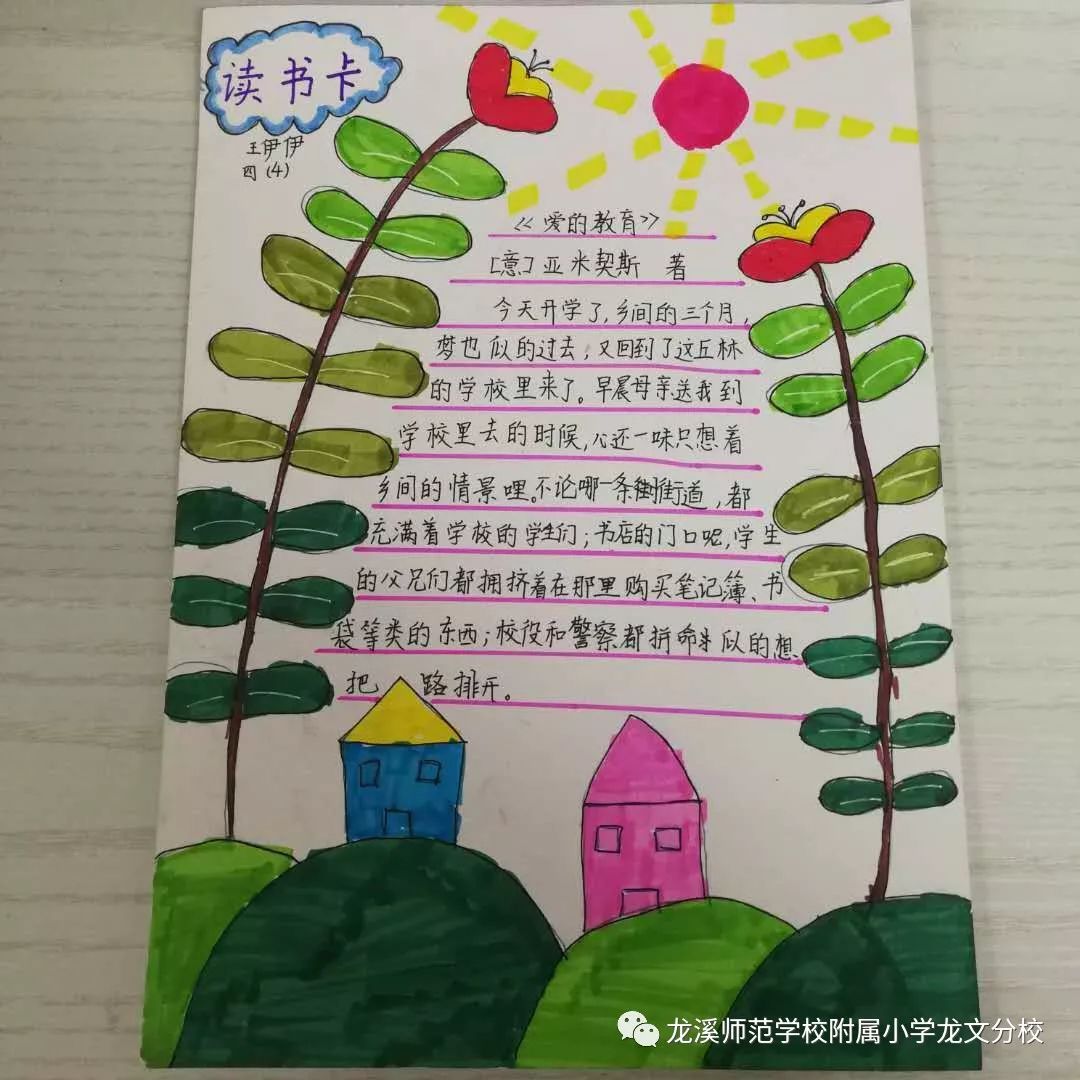 读书卡
王伊伊
四(4)
《爱的教育》
[意]亚米契斯 著
今天开学了,乡间的三个月,
梦也似的过去;又回到了这丘林
的学校里来了。早晨母亲送我到
学校里去的时候,心还一味只想着
乡间的情景哩。不论哪一条街道,都
充满着学校的学生们;书店的门口呢,学生
的父兄们都拥挤着在那里购买笔记簿、书
袋等类的东西;校役和警察都拼命似的想
把 路排开。
龙溪师范学校附属小学龙文分校